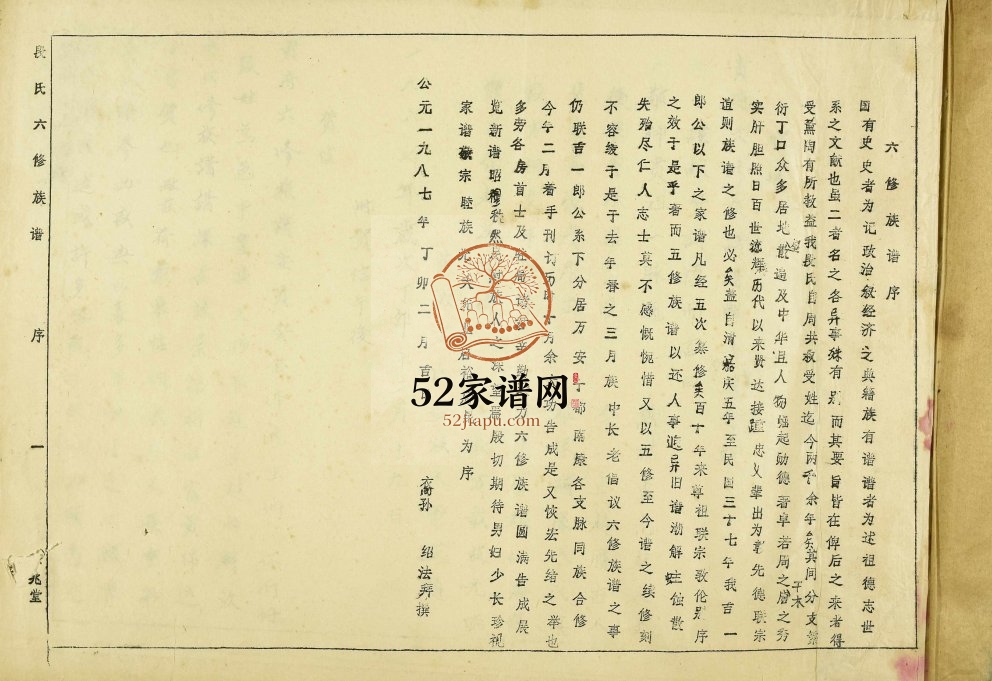 六修族谱序
国有史史者为记政治叙经济之典籍族有谱谱者为述祖德志世
系之文献也虽二者名之各异事殊有别而其要旨皆在俾后之来者得
受薰陶有所教益我段氏自周共叔受姓迄今两千余年矣其间分支繁
衍丁口众多居地散遍及中华且人物崛起勋德著卓若周之干木唐之秀
实肝胆照日百世流辉历代以来贤达接踵忠义辈出为彰先德联宗
谊则族谱之修也必矣益自清嘉庆五年至民国三十七年我吉一
郎公以下之家谱凡经五次纂修矣百十年来尊祖联宗敦伦别序
之效于是乎著而五修族谱以还人事迥异旧谱渐解蛀蚀散
失殆尽仁人志士莫不感慨惋惜又以五修至今谱之续修刻
不容缓于是于去年春之三月族中长老倡议六修族谱之事
仍联吉一郎公系下分居万安 都 各支脉同族合修
今年二月着手刊订历时 月余 功告成是又恢宏先绪之举也
多劳各房首士及 力六修族谱圆满告成展
览新谱昭穆秩然 族人之深 殷切期待男妇少长珍视
家谱敬宗睦族 为序
公元一九八七年丁卯二月吉
裔孙 绍法拜撰
段氏六修族谱 序 一
兆堂
52家谱网
52jiapu.com